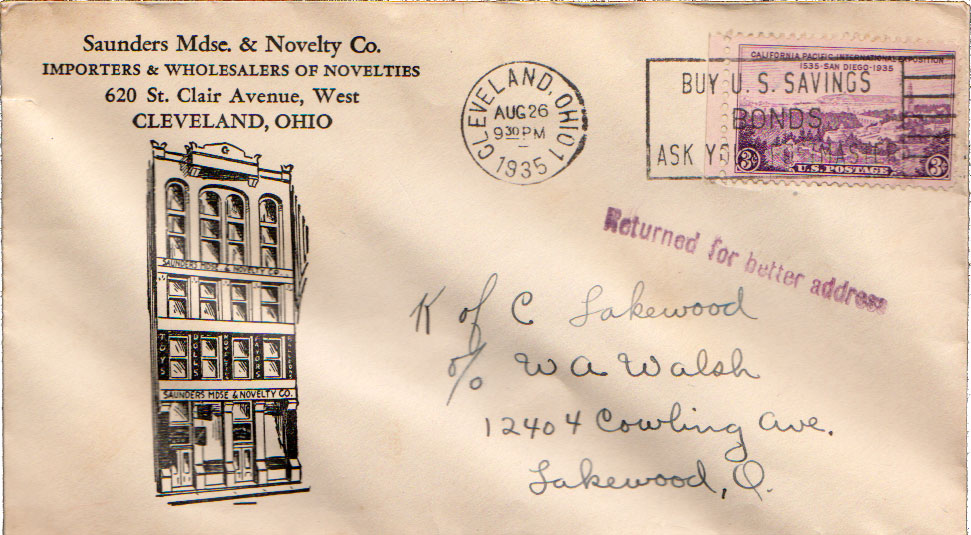 Saunders Mdse. & Novelty Co.
IMPORTERS & WHOLESALERS OF NOVELTIES
620 St. Clair Avenue, West
CLEVELAND, OHIO
CLEVELAND, OHIO 1
AUG 26
9 30 PM
1935
CALIFORNIA PACIFIC INTERNATIONAL EXPOSITION
1535-SAN DIEGO-1935
3¢ U.S. POSTAGE 3¢
BUY U. S. SAVINGS
BONDS
ASK YOUR POSTMASTER
Returned for better address
K of C Lakewood
c/o W A Walsh
12404 Cowling Ave.
Lakewood, O.
SAUNDERS MDSE. & NOVELTY CO.
TOYS DOLLS NOVELTIES FAVORS BALLOONS
SAUNDERS MDSE & NOVELTY CO.